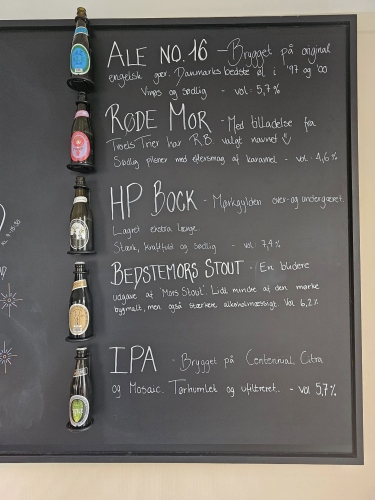 ALE NO. 16 - Brygget på original
engelsk gær. Danmarks bedste øl i '97 og '00
Vinøs og sødlig - vol: 5,7%
RØDE MOR - Med tilladelse fra
Troels Trier har R.B. valgt navnet
Sødlig pilsner med eftersmag af karamel - vol: 4,6%
HP BOCK - Mørkgylden over- og undergæret.
Lagret ekstra længe.
Stærk, kraftfuld og sødlig - vol: 7,4%
BEDSTEMORS STOUT - En blidere
udgave af 'Mors Stout'. Lidt mindre af den mørke
bygmalt, men også stærkere alkoholmæssigt. Vol 6,2%
IPA - Brygget på Centennial, Citra
og Mosaic. Tørhumlet og ufiltreret. - vol 5,7%